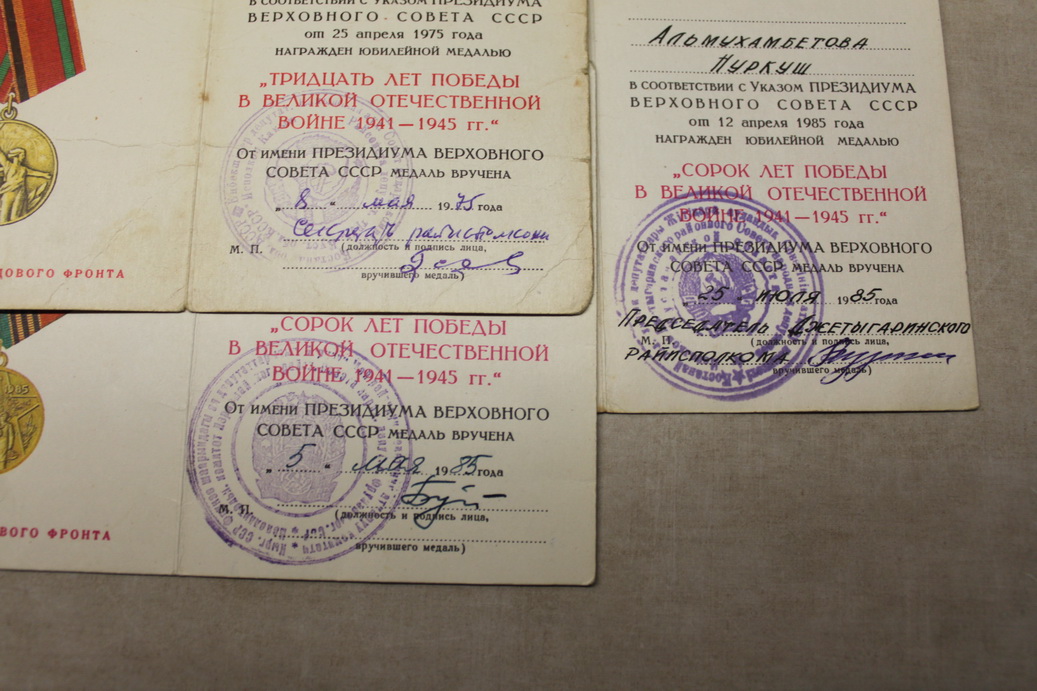 В СООТВЕТСТВИИ С УКАЗОМ ПРЕЗИДИУМА
ВЕРХОВНОГО СОВЕТА СССР
от 25 апреля 1975 года
НАГРАЖДЕН ЮБИЛЕЙНОЙ МЕДАЛЬЮ
„ТРИДЦАТЬ ЛЕТ ПОБЕДЫ
В ВЕЛИКОЙ ОТЕЧЕСТВЕННОЙ
ВОЙНЕ 1941—1945 гг.“
От имени ПРЕЗИДИУМА ВЕРХОВНОГО
СОВЕТА СССР МЕДАЛЬ ВРУЧЕНА
„ 8 “ мая 1975 года
Секретарь райисполкома
М. П. (должность и подпись лица,
вручившего медаль)
ДОВОГО ФРОНТА
„СОРОК ЛЕТ ПОБЕДЫ
В ВЕЛИКОЙ ОТЕЧЕСТВЕННОЙ
ВОЙНЕ 1941—1945 гг.“
От имени ПРЕЗИДИУМА ВЕРХОВНОГО
СОВЕТА СССР МЕДАЛЬ ВРУЧЕНА
„ 5 “ мая 1985 года
М. П. (должность и подпись лица,
вручившего медаль)
ВОГО ФРОНТА
1985
АЛЬМУХАМБЕТОВА
НУРКУШ
В СООТВЕТСТВИИ С УКАЗОМ ПРЕЗИДИУМА
ВЕРХОВНОГО СОВЕТА СССР
от 12 апреля 1985 года
НАГРАЖДЕН ЮБИЛЕЙНОЙ МЕДАЛЬЮ
„СОРОК ЛЕТ ПОБЕДЫ
В ВЕЛИКОЙ ОТЕЧЕСТВЕННОЙ
ВОЙНЕ 1941—1945 гг.“
От имени ПРЕЗИДИУМА ВЕРХОВНОГО
СОВЕТА СССР МЕДАЛЬ ВРУЧЕНА
25 ИЮЛЯ 1985 года
ПРЕДСЕДАТЕЛЬ ДЖЕТЫГАРИНСКОГО
М. П. (должность и подпись лица,
РАЙИСПОЛКОМА
вручившего медаль)